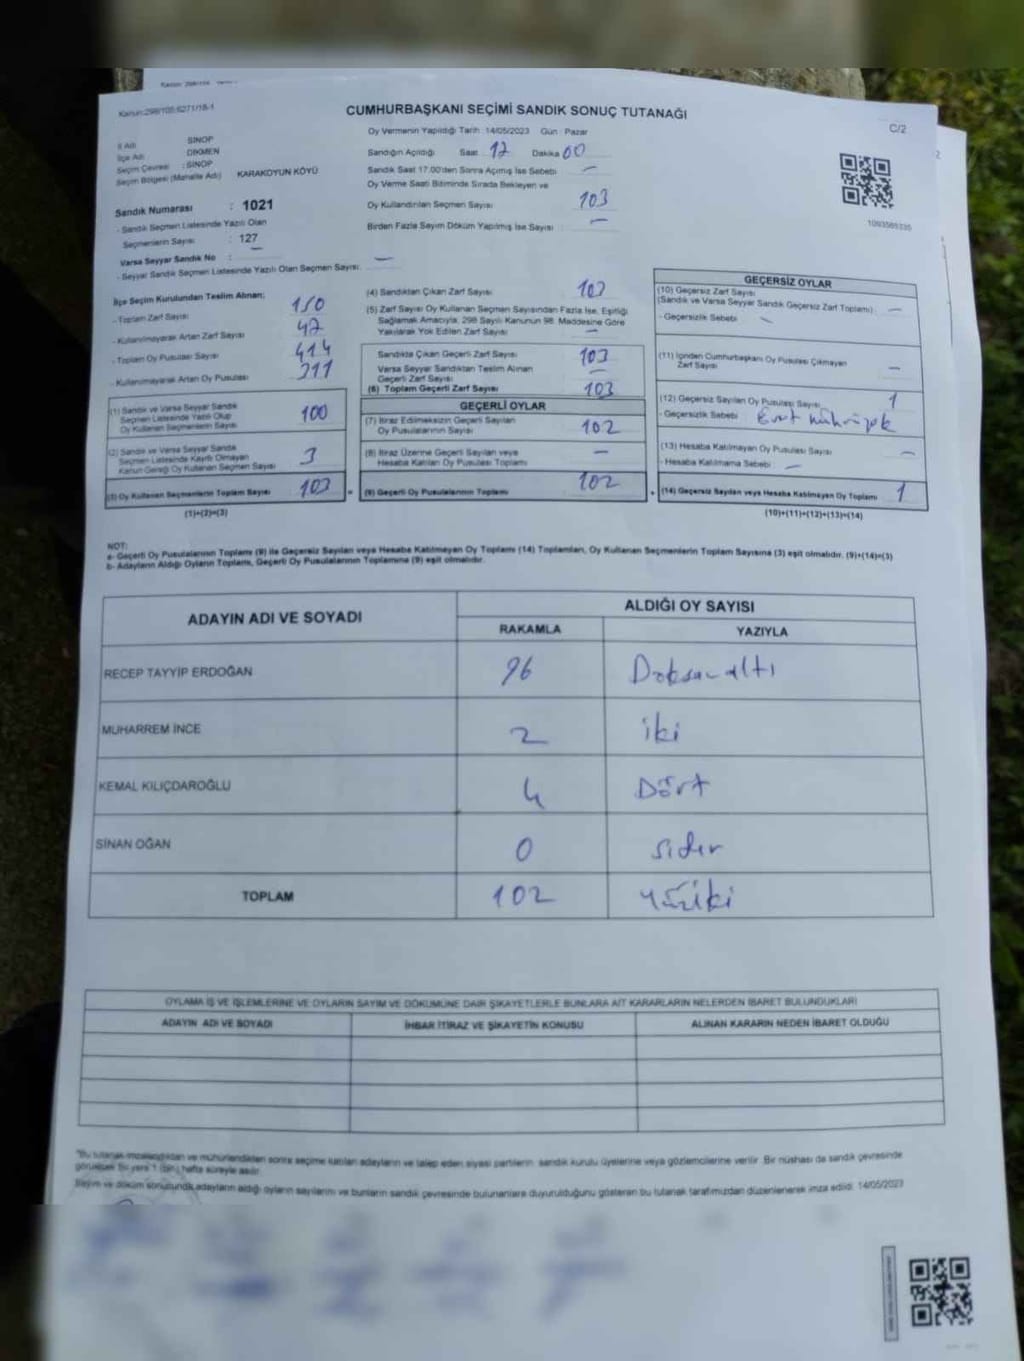 Kanun:298/105;6271/18-1
CUMHURBAŞKANI SEÇİMİ SANDIK SONUÇ TUTANAĞI
C/2
İl Adı SİNOP
İlçe Adı DİKMEN
Seçim Çevresi : SİNOP
Seçim Bölgesi (Mahalle Adı) KARAKOYUN KÖYÜ
Sandık Numarası : 1021
- Sandık Seçmen Listesinde Yazılı Olan
Seçmenlerin Sayısı : 127
Varsa Seyyar Sandık No : —
- Seyyar Sandık Seçmen Listesinde Yazılı Olan Seçmen Sayısı: —
Oy Vermenin Yapıldığı Tarih :14/05/2023 Gün : Pazar
Sandığın Açıldığı Saat 17 Dakika 00
Sandık Saat 17.00'den Sonra Açılmış İse Sebebi —
Oy Verme Saati Bitiminde Sırada Bekleyen ve
Oy Kullandırılan Seçmen Sayısı 103
Birden Fazla Sayım Döküm Yapılmış İse Sayısı : —
1093565335
İlçe Seçim Kurulundan Teslim Alınan:
- Toplam Zarf Sayısı 150
- Kullanılmayarak Artan Zarf Sayısı 47
- Toplam Oy Pusulası Sayısı 414
- Kullanılmayarak Artan Oy Pusulası 311
(1) Sandık ve Varsa Seyyar Sandık
Seçmen Listesinde Yazılı Olup
Oy Kullanan Seçmenlerin Sayısı 100
(2) Sandık ve Varsa Seyyar Sandık
Seçmen Listesinde Kayıtlı Olmayan
Kanun Gereği Oy Kullanan Seçmen Sayısı 3
(3) Oy Kullanan Seçmenlerin Toplam Sayısı 103
(1)+(2)=(3)
(4) Sandıktan Çıkan Zarf Sayısı 103
(5) Zarf Sayısı Oy Kullanan Seçmen Sayısından Fazla İse, Eşitliği
Sağlamak Amacıyla; 298 Sayılı Kanunun 98. Maddesine Göre
Yakılarak Yok Edilen Zarf Sayısı —
Sandıkta Çıkan Geçerli Zarf Sayısı 103
Varsa Seyyar Sandıktan Teslim Alınan
Geçerli Zarf Sayısı —
(6) Toplam Geçerli Zarf Sayısı 103
GEÇERLİ OYLAR
(7) İtiraz Edilmeksizin Geçerli Sayılan
Oy Pusulalarının Sayısı 102
(8) İtiraz Üzerine Geçerli Sayılan veya
Hesaba Katılan Oy Pusulası Toplamı —
= (9) Geçerli Oy Pusulalarının Toplamı 102
GEÇERSİZ OYLAR
(10) Geçersiz Zarf Sayısı
(Sandık ve Varsa Seyyar Sandık Geçersiz Zarf Toplamı) : —
- Geçersizlik Sebebi —
(11) İçinden Cumhurbaşkanı Oy Pusulası Çıkmayan
Zarf Sayısı —
(12) Geçersiz Sayılan Oy Pusulası Sayısı 1
- Geçersizlik Sebebi
(13) Hesaba Katılmayan Oy Pusulası Sayısı —
- Hesaba Katılmama Sebebi —
+ (14) Geçersiz Sayılan veya Hesaba Katılmayan Oy Toplamı 1
(10)+(11)+(12)+(13)=(14)
NOT:
a- Geçerli Oy Pusulalarının Toplamı (9) ile Geçersiz Sayılan veya Hesaba Katılmayan Oy Toplamı (14) Toplamları, Oy Kullanan Seçmenlerin Toplam Sayısına (3) eşit olmalıdır. (9)+(14)=(3)
b- Adayların Aldığı Oyların Toplamı, Geçerli Oy Pusulalarının Toplamına (9) eşit olmalıdır.
ADAYIN ADI VE SOYADI
ALDIĞI OY SAYISI
RAKAMLA YAZIYLA
RECEP TAYYİP ERDOĞAN 96 Doksan altı
MUHARREM İNCE 2 iki
KEMAL KILIÇDAROĞLU 4 Dört
SİNAN OĞAN 0 sıfır
TOPLAM 102 yüziki
OYLAMA İŞ VE İŞLEMLERİNE VE OYLARIN SAYIM VE DÖKÜMÜNE DAİR ŞİKAYETLERLE BUNLARA AİT KARARLARIN NELERDEN İBARET BULUNDUKLARI
ADAYIN ADI VE SOYADI İHBAR İTİRAZ VE ŞİKAYETİN KONUSU ALINAN KARARIN NEDEN İBARET OLDUĞU
*Bu tutanak imzalandıktan ve mühürlendikten sonra seçime katılan adayların ve talep eden siyasi partilerin, sandık kurulu üyelerine veya gözlemcilerine verilir. Bir nüshası da sandık çevresinde
görülecek bir yere 1 (bir) hafta süreyle asılır.
Seçim ve döküm sonucunda adayların aldığı oyların sayılarını ve bunların sandık çevresinde bulunanlara duyurulduğunu gösteren bu tutanak tarafımızdan düzenlenerek imza edildi. 14/05/2023